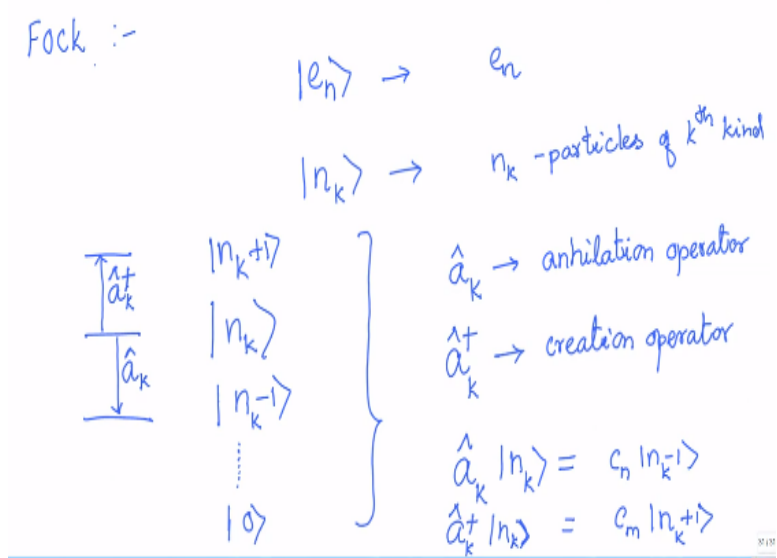 Fock :-
|eₙ⟩ → eₙ
|nₖ⟩ → nₖ -particles of kᵗʰ kind
|nₖ+1⟩
âₖ† |nₖ⟩ âₖ → anhilation operator
âₖ |nₖ-1⟩ âₖ† → creation operator
âₖ |nₖ⟩ = cₙ |nₖ-1⟩
|0⟩ âₖ† |nₖ⟩ = cₘ |nₖ+1⟩